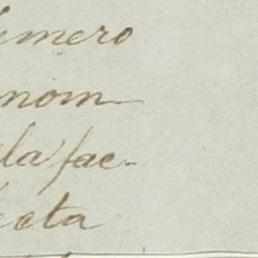 imero
nom
la fac-
ecta